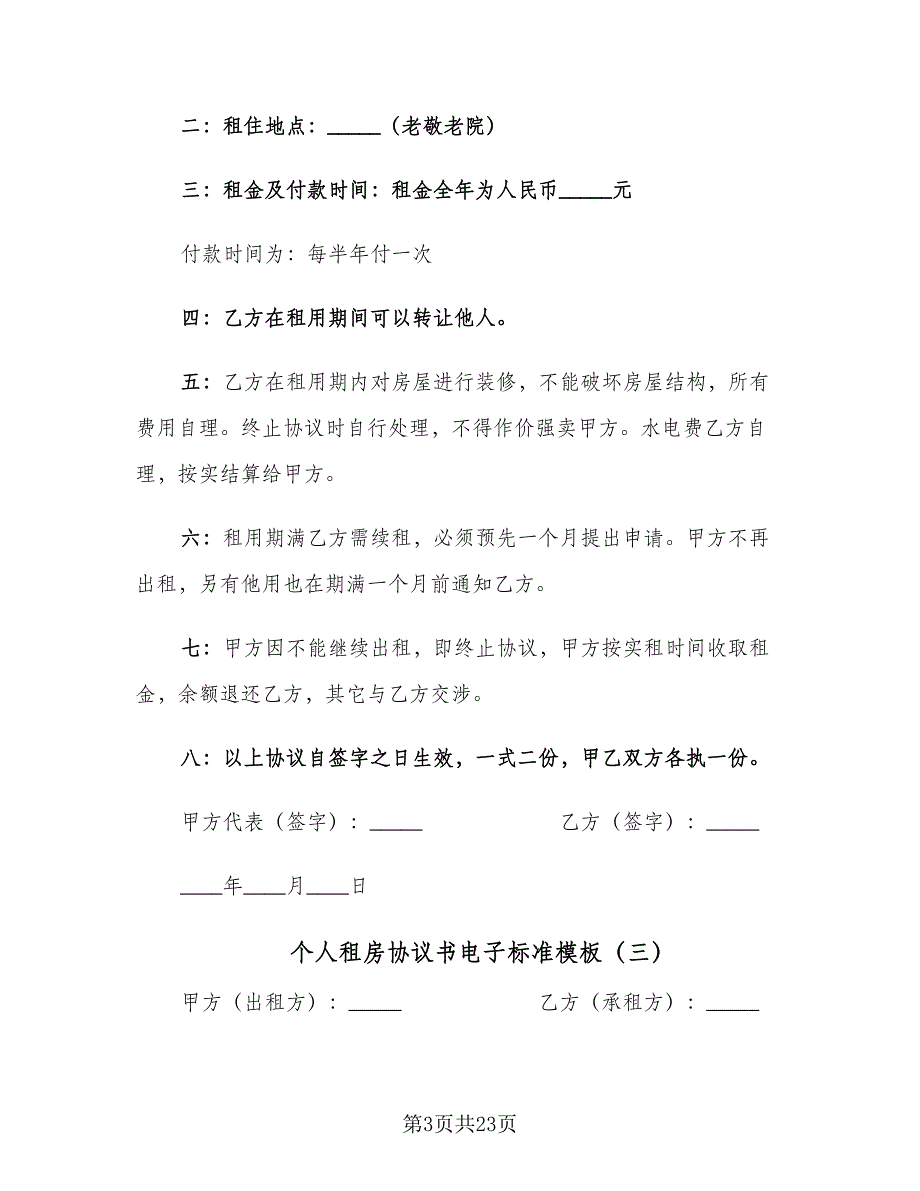 二：租住地点：_____（老敬老院）
三：租金及付款时间：租金全年为人民币_____元
付款时间为：每半年付一次
四：乙方在租用期间可以转让他人。
五：乙方在租用期内对房屋进行装修，不能破坏房屋结构，所有
费用自理。终止协议时自行处理，不得作价强卖甲方。水电费乙方自
理，按实结算给甲方。
六：租用期满乙方需续租，必须预先一个月提出申请。甲方不再
出租，另有他用也在期满一个月前通知乙方。
七：甲方因不能继续出租，即终止协议，甲方按实租时间收取租
金，余额退还乙方，其它与乙方交涉。
八：以上协议自签字之日生效，一式二份，甲乙双方各执一份。
甲方代表（签字）：_____ 乙方（签字）：_____
____年____月____日
个人租房协议书电子标准模板（三）
甲方（出租方）：_____ 乙方（承租方）：_____
第3页共23页